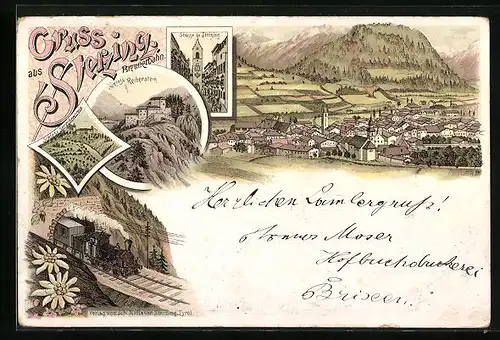 Gruss
aus
Sterzing.
Brennerbahn.
Strasse in Sterzing
Schloss Reifenstein
Herzlichen
Moser
Hofbuchdruckerei
Brixen
Verlag von Joh. Sterzing, Tyrol